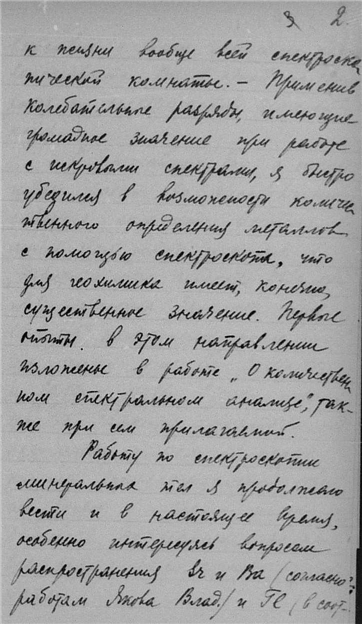 2.
к жизни вообще всей спектроско
пической комнаты. – Применив
колебательные разряды, имеющие
громадное значение при работе
с искровыми спектрами, я быстро
убедился в возможности количе
ственного определения металлов
с помощью спектроскопа, что
для геохимика имеет, конечно,
существенное значение. Первые
опыты в этом направлении
изложены в работе „О количествен
ном спектральном анализе", так-
же при сем прилагаемой.
Работу по спектроскопии
минеральных тел я продолжаю
вести и в настоящее время,
особенно интересуясь вопросом
распространения Sr и Ba (согласно
работам Якова Влад.) и Tl (в соот-